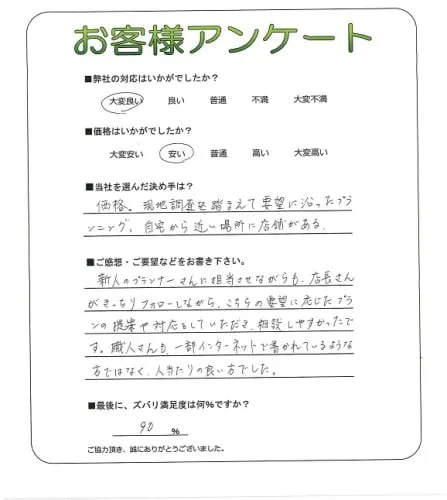 お客様アンケート
■弊社の対応はいかがでしたか？
大変良い 良い 普通 不満 大変不満
■価格はいかがでしたか？
大変安い 安い 普通 高い 大変高い
■当社を選んだ決め手は？
価格。現地調査を踏まえて要望に沿ったプラ
ンニング。自宅から近い場所に店舗がある。
■ご感想・ご要望などをお書き下さい。
新人のプランナーさんに担当させながらも、店長さん
がきっちりフォローしながら、こちらの要望に応じたプラン
の提案や対応をしていただき、相談しやすかったで
す。職人さんも、一部インターネットで書かれているような
方ではなく、人当たりの良い方でした。
■最後に、ズバリ満足度は何%ですか？
90 %
ご協力頂き、誠にありがとうございました。